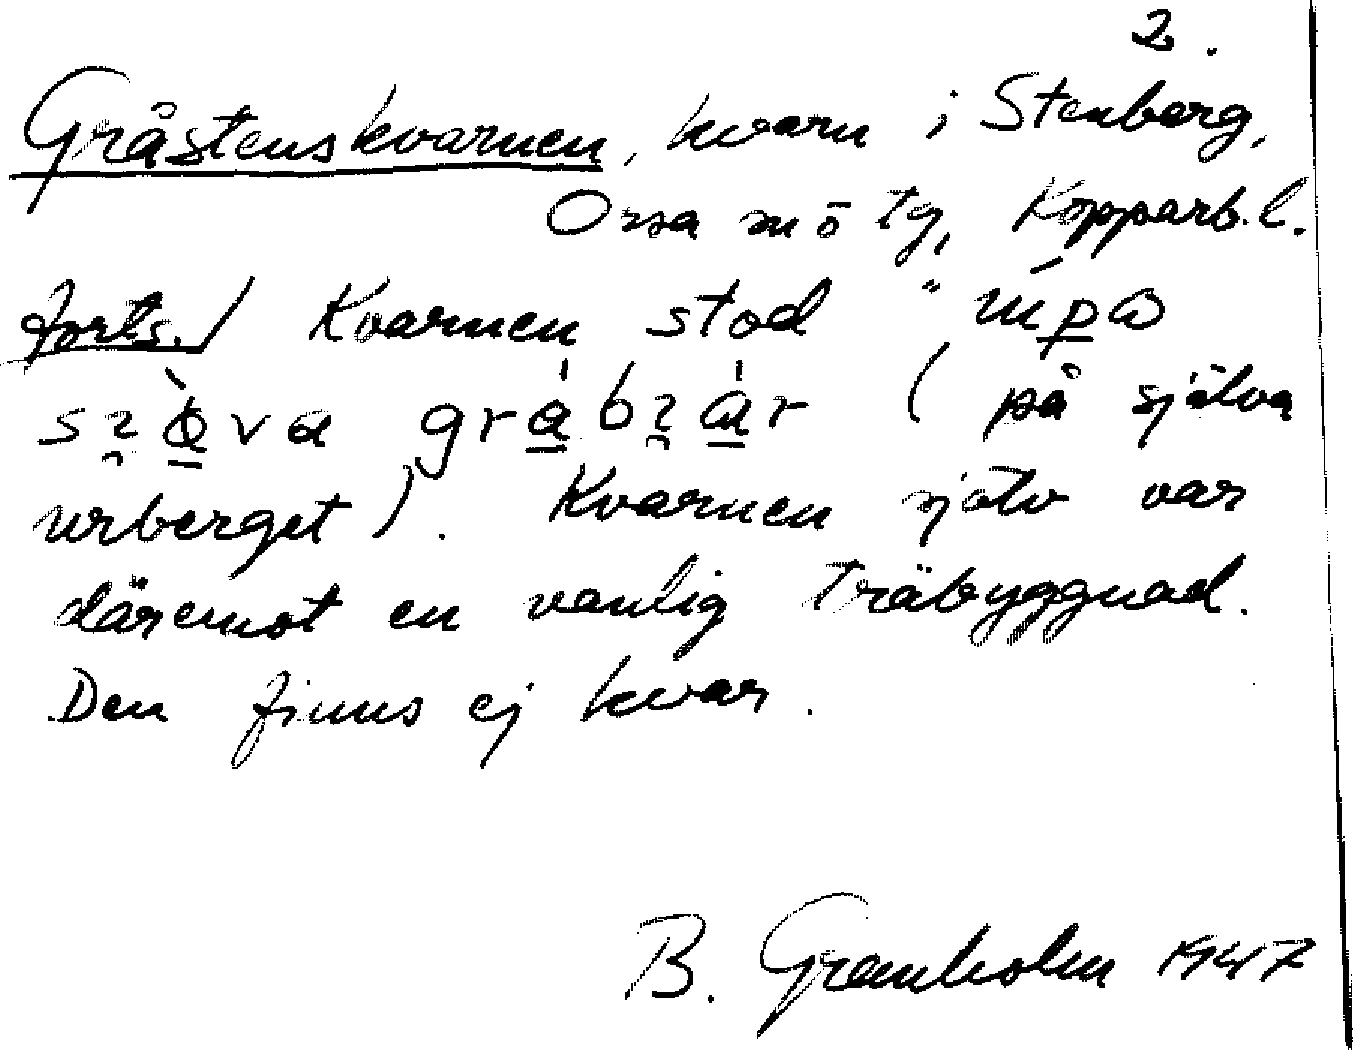 2.
Gråstenskvarnen, kvarn i Stenberg,
Orsa sn ö tg, Kopparb.l.
forts./ Kvarnen stod "
(på själva
urberget). Kvarnen själv var
däremot en vanlig träbyggnad.
Den finns ej kvar.
B. Granholm 1947